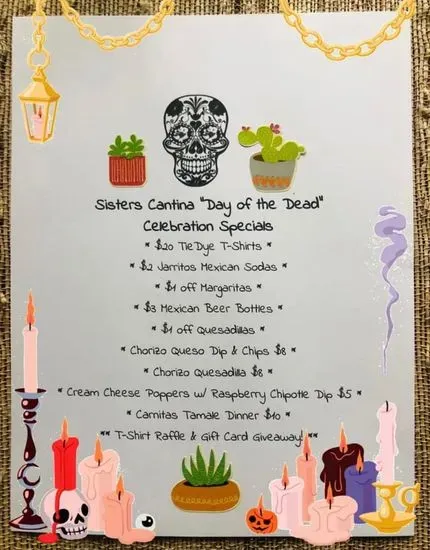 Sisters Cantina "Day of the Dead"
Celebration Specials
* $20 TieDye T-Shirts *
* $2 Jarritos Mexican Sodas *
* $1 off Margaritas *
* $3 Mexican Beer Bottles *
* $1 off Quesadillas *
* Chorizo Queso Dip & Chips $8 *
* Chorizo Quesadilla $8 *
* Cream Cheese Poppers w/ Raspberry Chipotle Dip $5 *
* Carnitas Tamale Dinner $10 *
** T-Shirt Raffle & Gift Card Giveaway! **